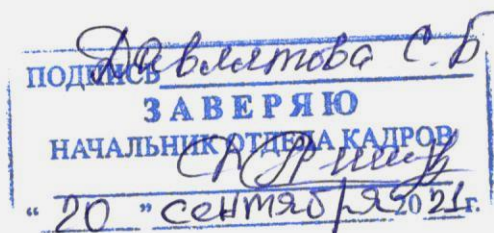 ПОДПИСЬ Давлятова С. Б
ЗАВЕРЯЮ
НАЧАЛЬНИК ОТДЕЛА КАДРОВ
“ 20 ” сентября 2021г.